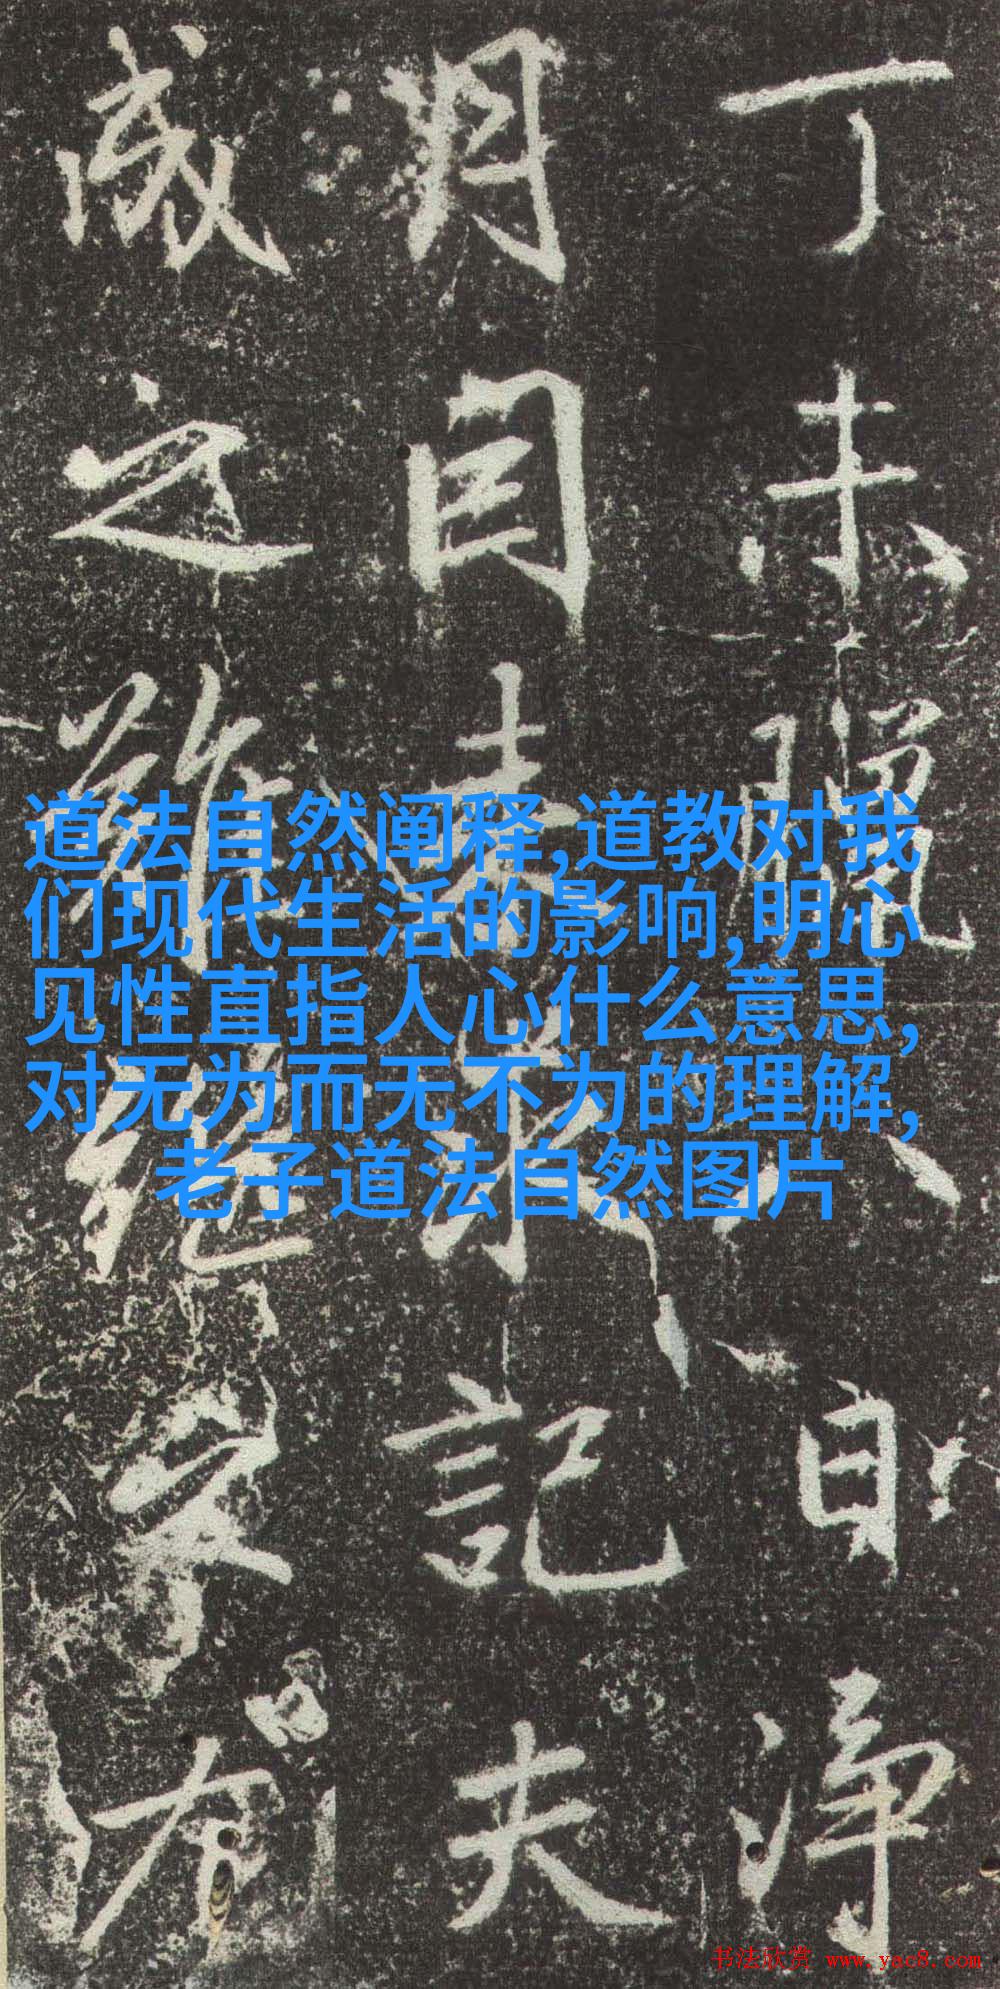 丁未臘八日淨
月来求記夫
成之雖
道法自然阐释,道教对我
们现代生活的影响,明心
见性直指人心什么意思,
对无为而无不为的理解,
老子道法自然图片
书法欣赏 www.yac8.com